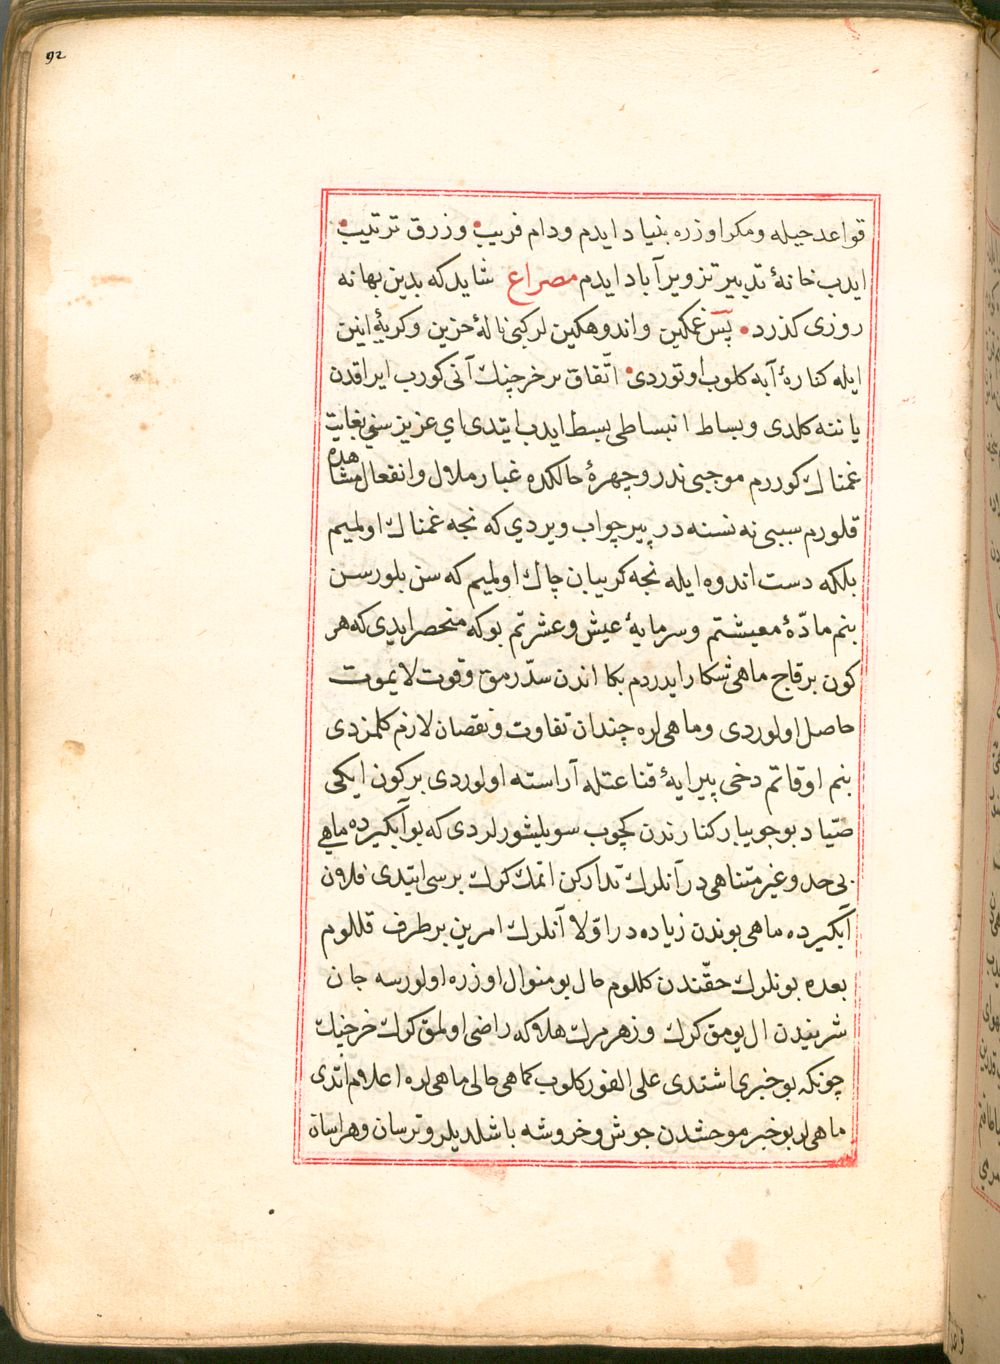 92
قواعد حيله ومكر اوزره بنياد ايدم ودام فريب وزرق ترتيب
ايدب خانهٔ تدبير تزوير آباد ايدم مصراع شايد كه بدين بهانه
روزى كذرد پس غمكين واندوهكين لركبى نالهٔ حزين وكريهٔ انين
ايله كنارهٔ آبه كلوب اوتوردى اتّفاق بر خرچنك آنى كورب ايراقدن
ياننه كلدى وبساط انبساطى بسط ايدب ايتدى اي عزيز سنى بغايت
غمناك كوررم موجبى ندر وچهرهٔ حالكده غبار ملال وانفعال مشاهده
قلورم سببى نه نسنه در پير جواب ويردي كه نجه غمناك اولميم
بلكه دست اندوه ايله نجه كريبان چاك اولميم كه سن بلورسن
بنم مادّهٔ معيشتم وسرمايهٔ عيش وعشرتم بوكه منحصر ايدى كه هر
كون بر قاچ ماهى شكار ايدردم بكا اندن سدّ رمق وقوت لايموت
حاصل اولوردى وماهى لره چندان تفاوت ونقصان لازم كلمزدى
بنم اوقاتم دخى پيرايهٔ قناعتله آراسته اولوردى بر كون ايكى
صيّاد بو جويبار كنارندن كچوب سويلشورلردى كه بو آبكيرده ماهي
بى حد وغير متناهى در آنلرك تداركن اتمك كرك برسى ايتدى فلان
آبكيرده ماهى بوندن زياده در اوّلا آنلرك امرين بر طرف قللوم
بعده بونلرك حقّندن كللوم حال بو منوال اوزره اولورسه جان
شريندن ال يومق كرك وزهر مرك هلاكه راضى اولمق كرك خرچنك
چونكه بو خبرى اشتدى على الفور كلوب كماهى حالى ماهى لره اعلام اتدى
ماهى لر بو خبر موحشدن جوش وخروشه باشلديلر وترسان وهراسان